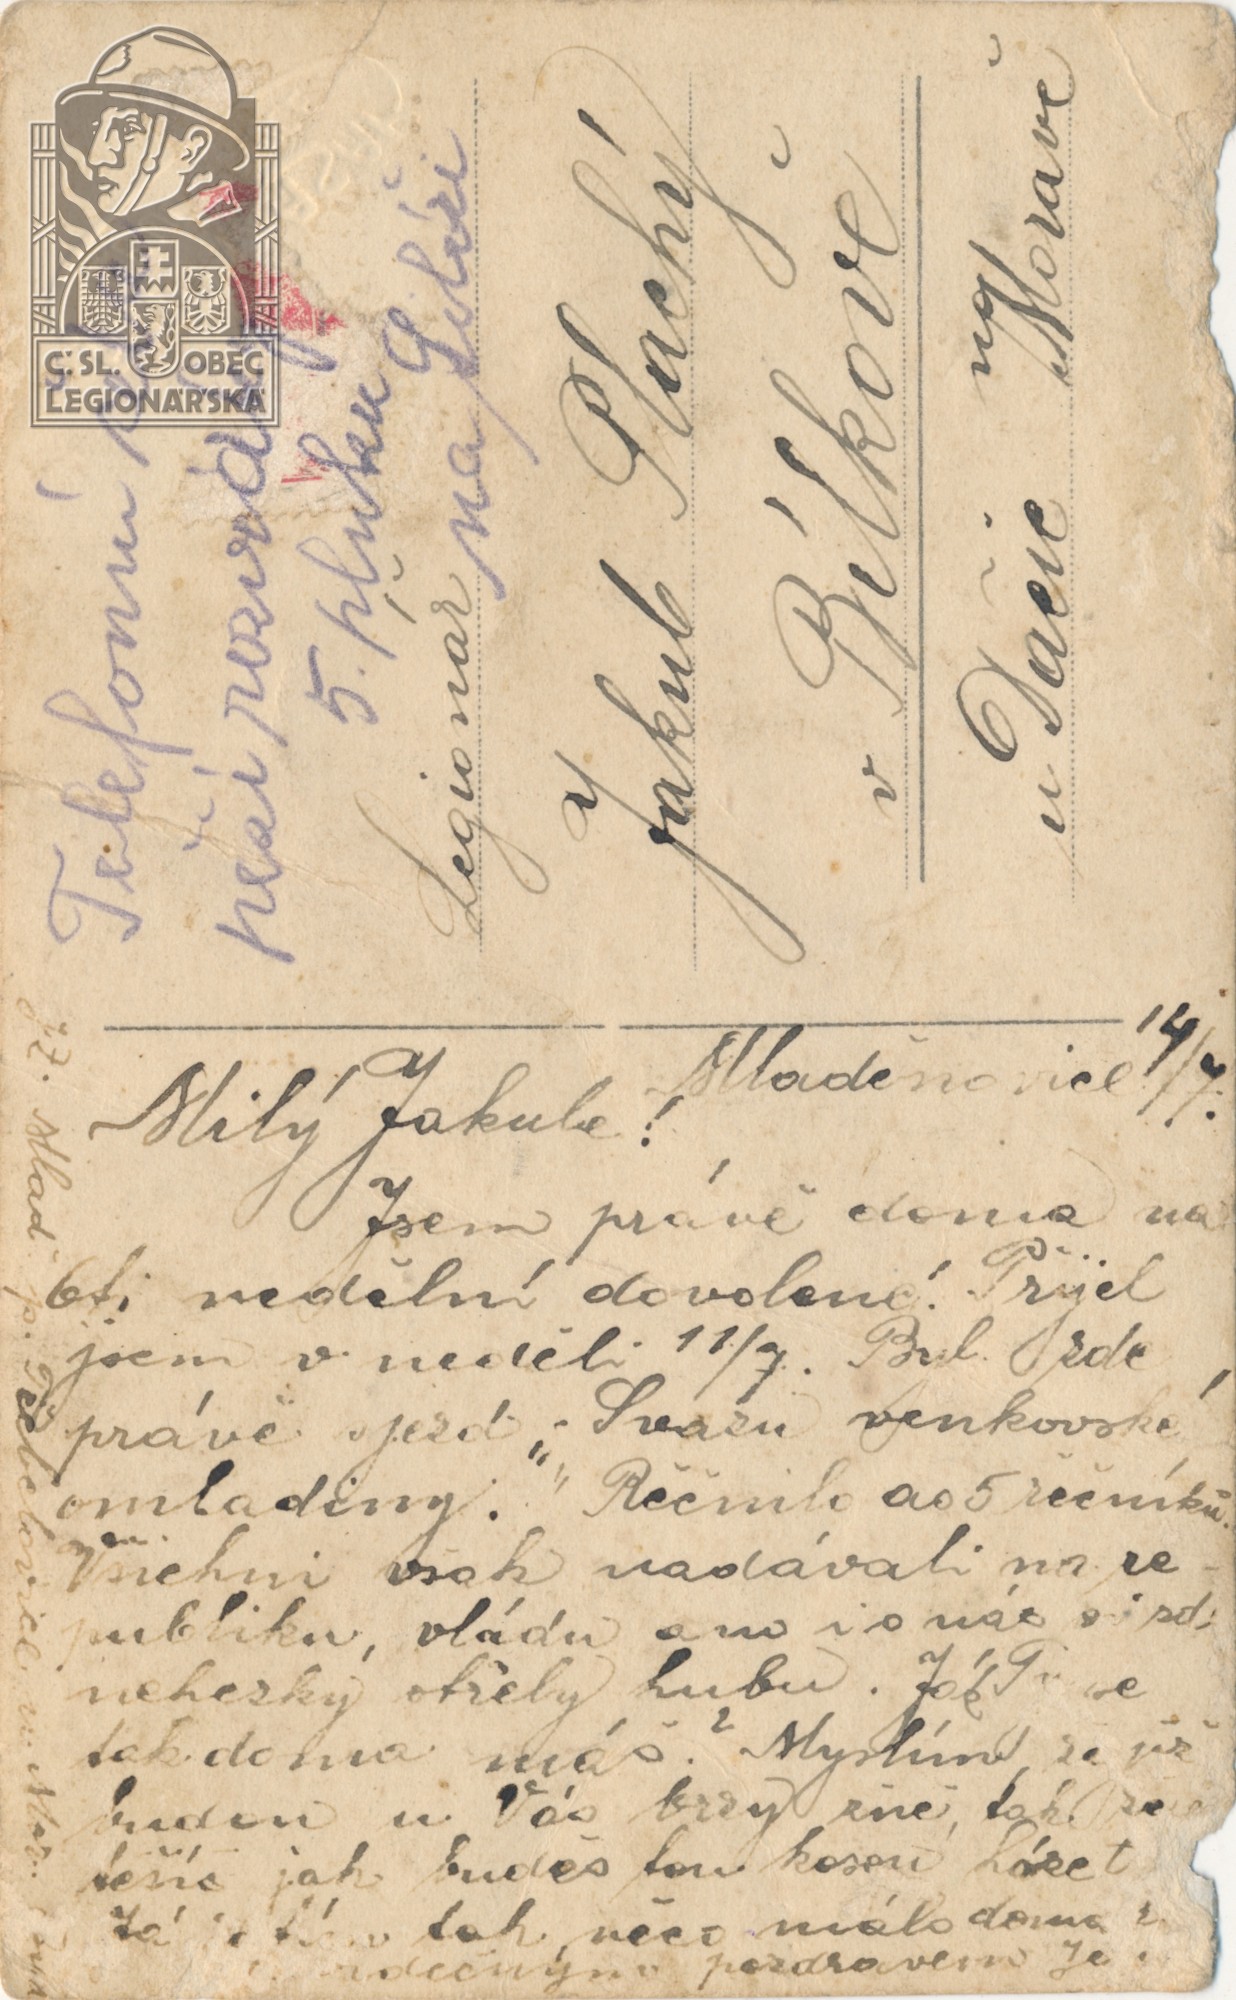 Č.SL. OBEC
LEGIONÁŘSKÁ
Telefonní
pěší
5. pluku
na Sibiři
Legionář
Jakub Plachý
v Bílkově
u Dačic na Moravě
Mladěnovice 14/7.
Milý Jakube!
Jsem právě doma na
6ti nedělní dovolené. Přijel
jsem v neděli 11/7. Byl zde
právě sjezd „Svazu venkovské
omladiny." Řečnilo as 5 řečníků.
Všichni však nadávali na re-
publiku, vládu ano i o nás si
nehezky otřely hubu. Jak se
tak doma máš? Myslím, že již
budou u Vás brzy žně, tak se
těšíš jak budeš tou kosou házet
Já tak něco málo doma
srdečným pozdravem